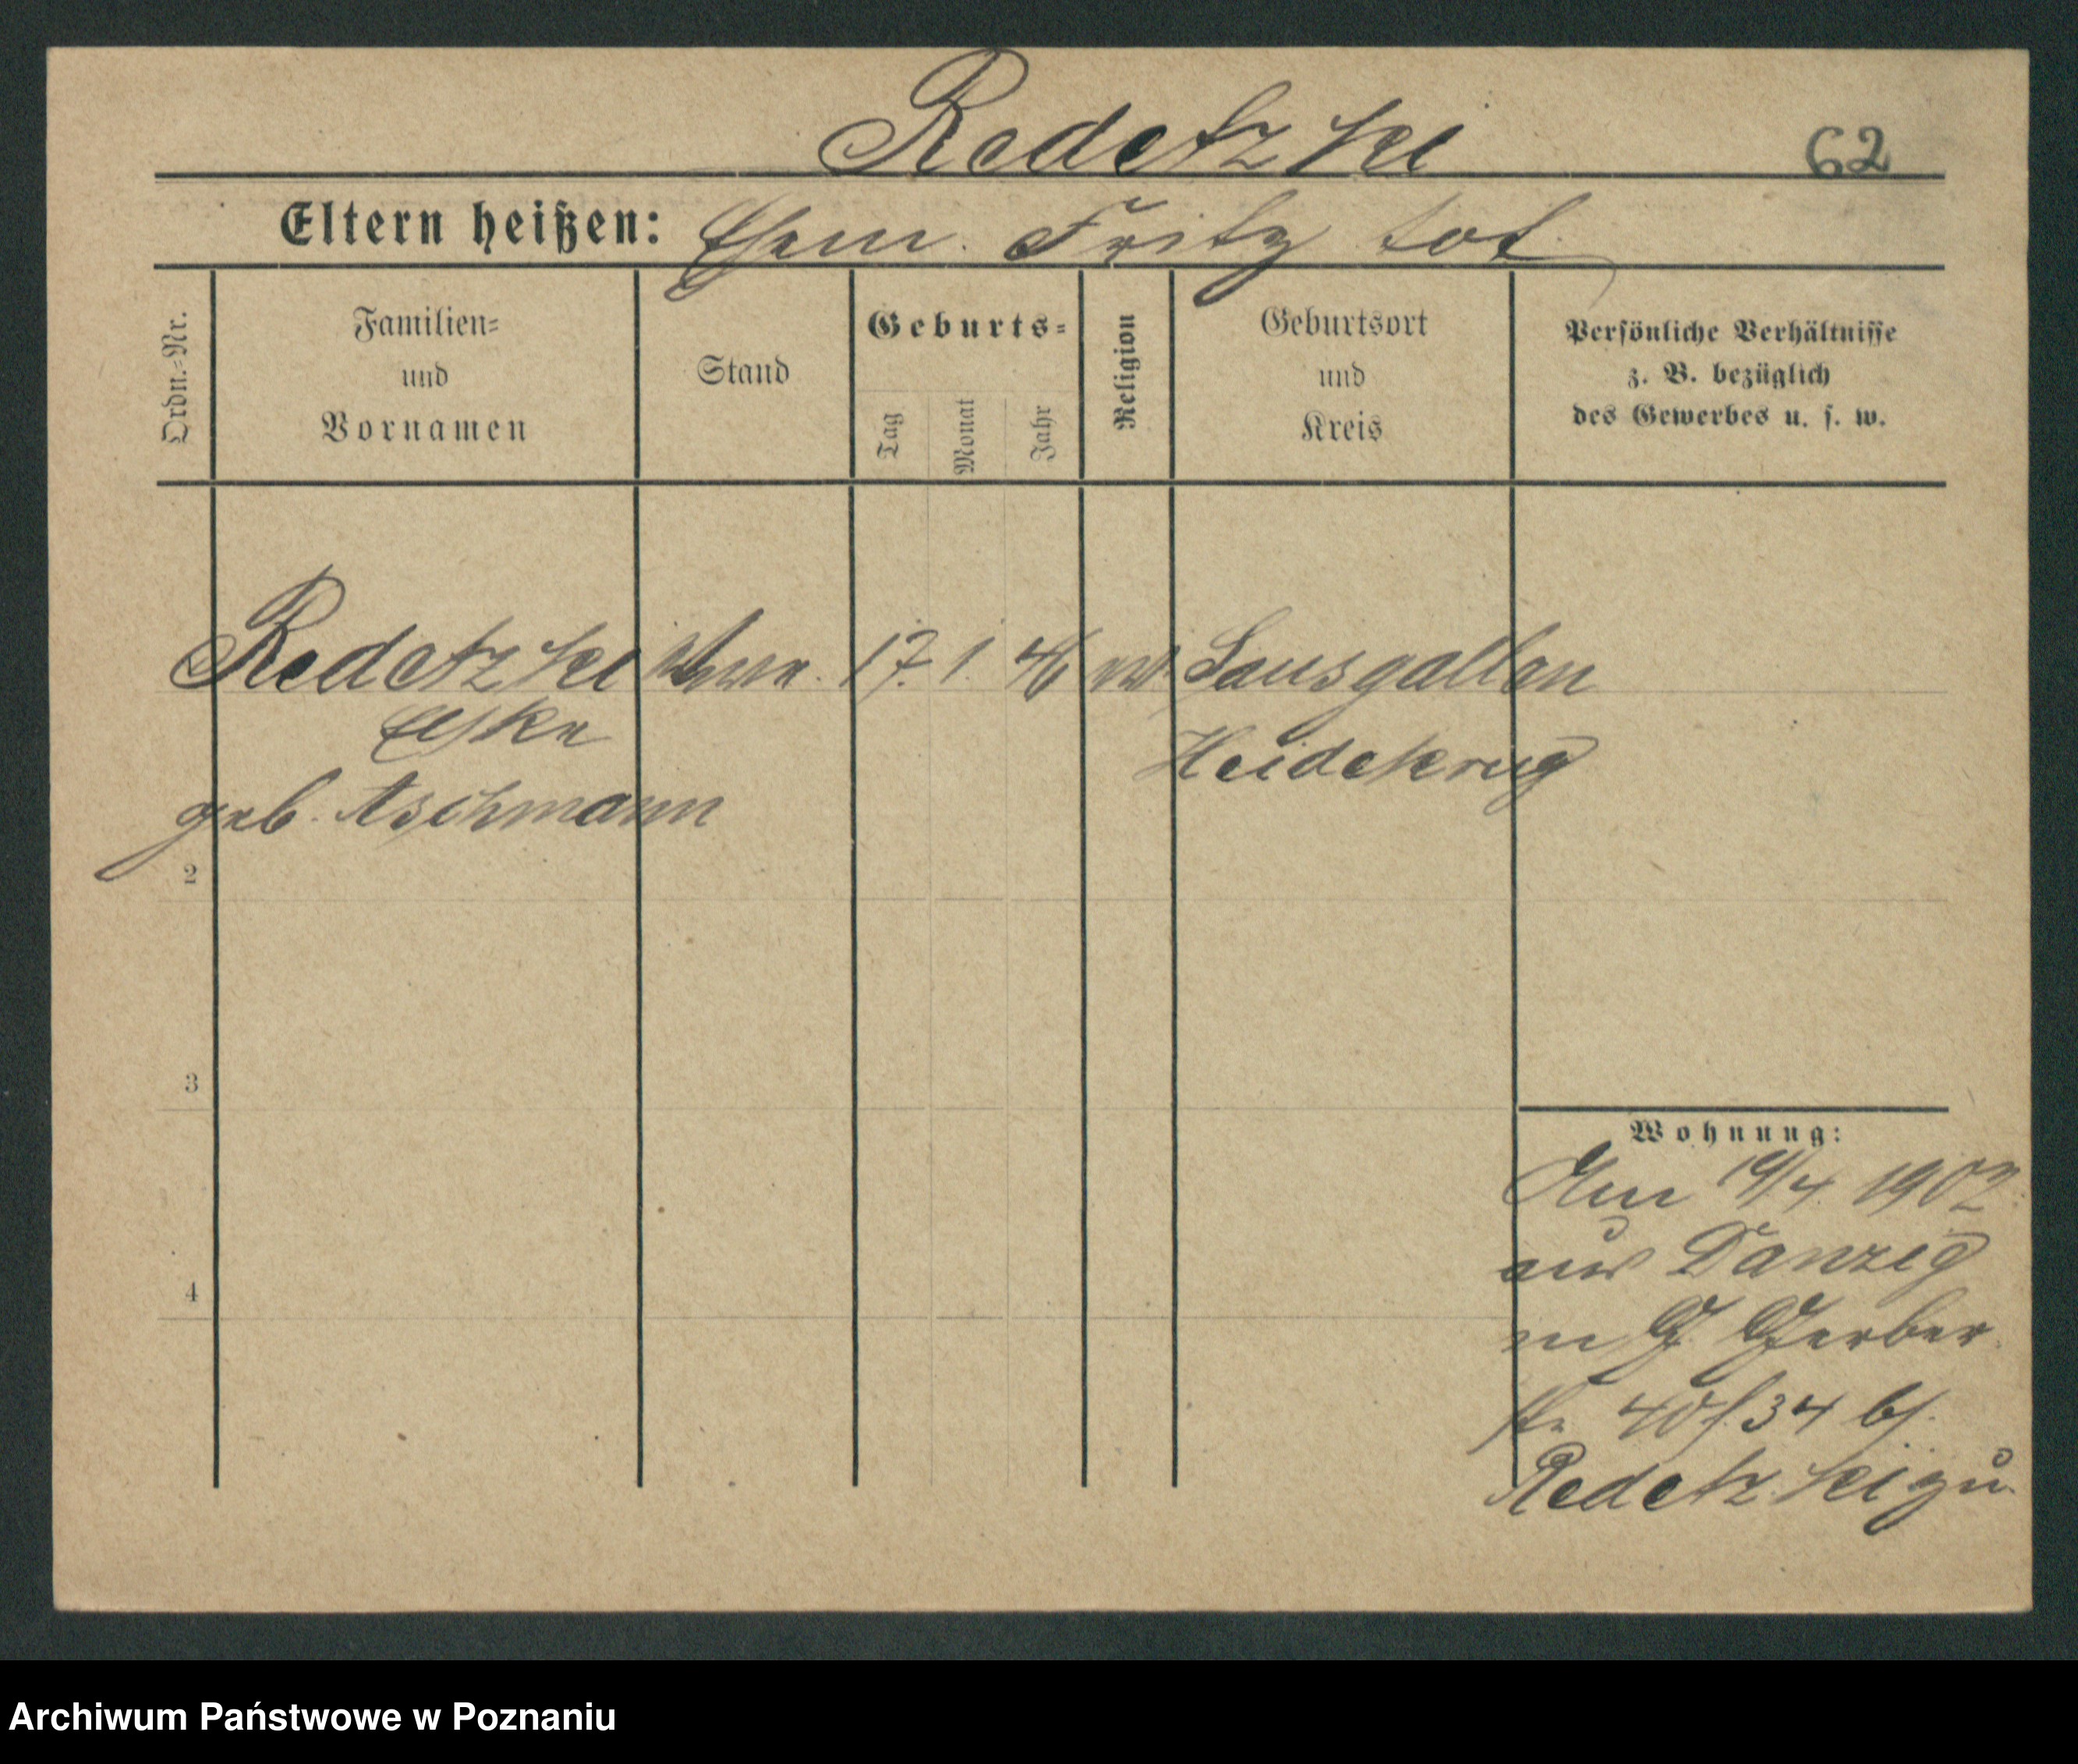 Redetzki 62
Eltern heißen: Ehem. Fritz tot
Ordn.=Nr.
Familien=
und
Vornamen
Stand
Geburts=
Tag
Monat
Jahr
Religion
Geburtsort
und
Kreis
Persönliche Verhältnisse
z. B. bezüglich
des Gewerbes u. s. w.
Redetzki Wwe. 17. 1. 46 ev. Lausgallen
Heidekrug
geb. Aschmann
2
3
4
Wohnung:
19/4 1902
aus Danzig
in G. Gerber
str 40 34 bs.
Redetzki zu.
Archiwum Państwowe w Poznaniu